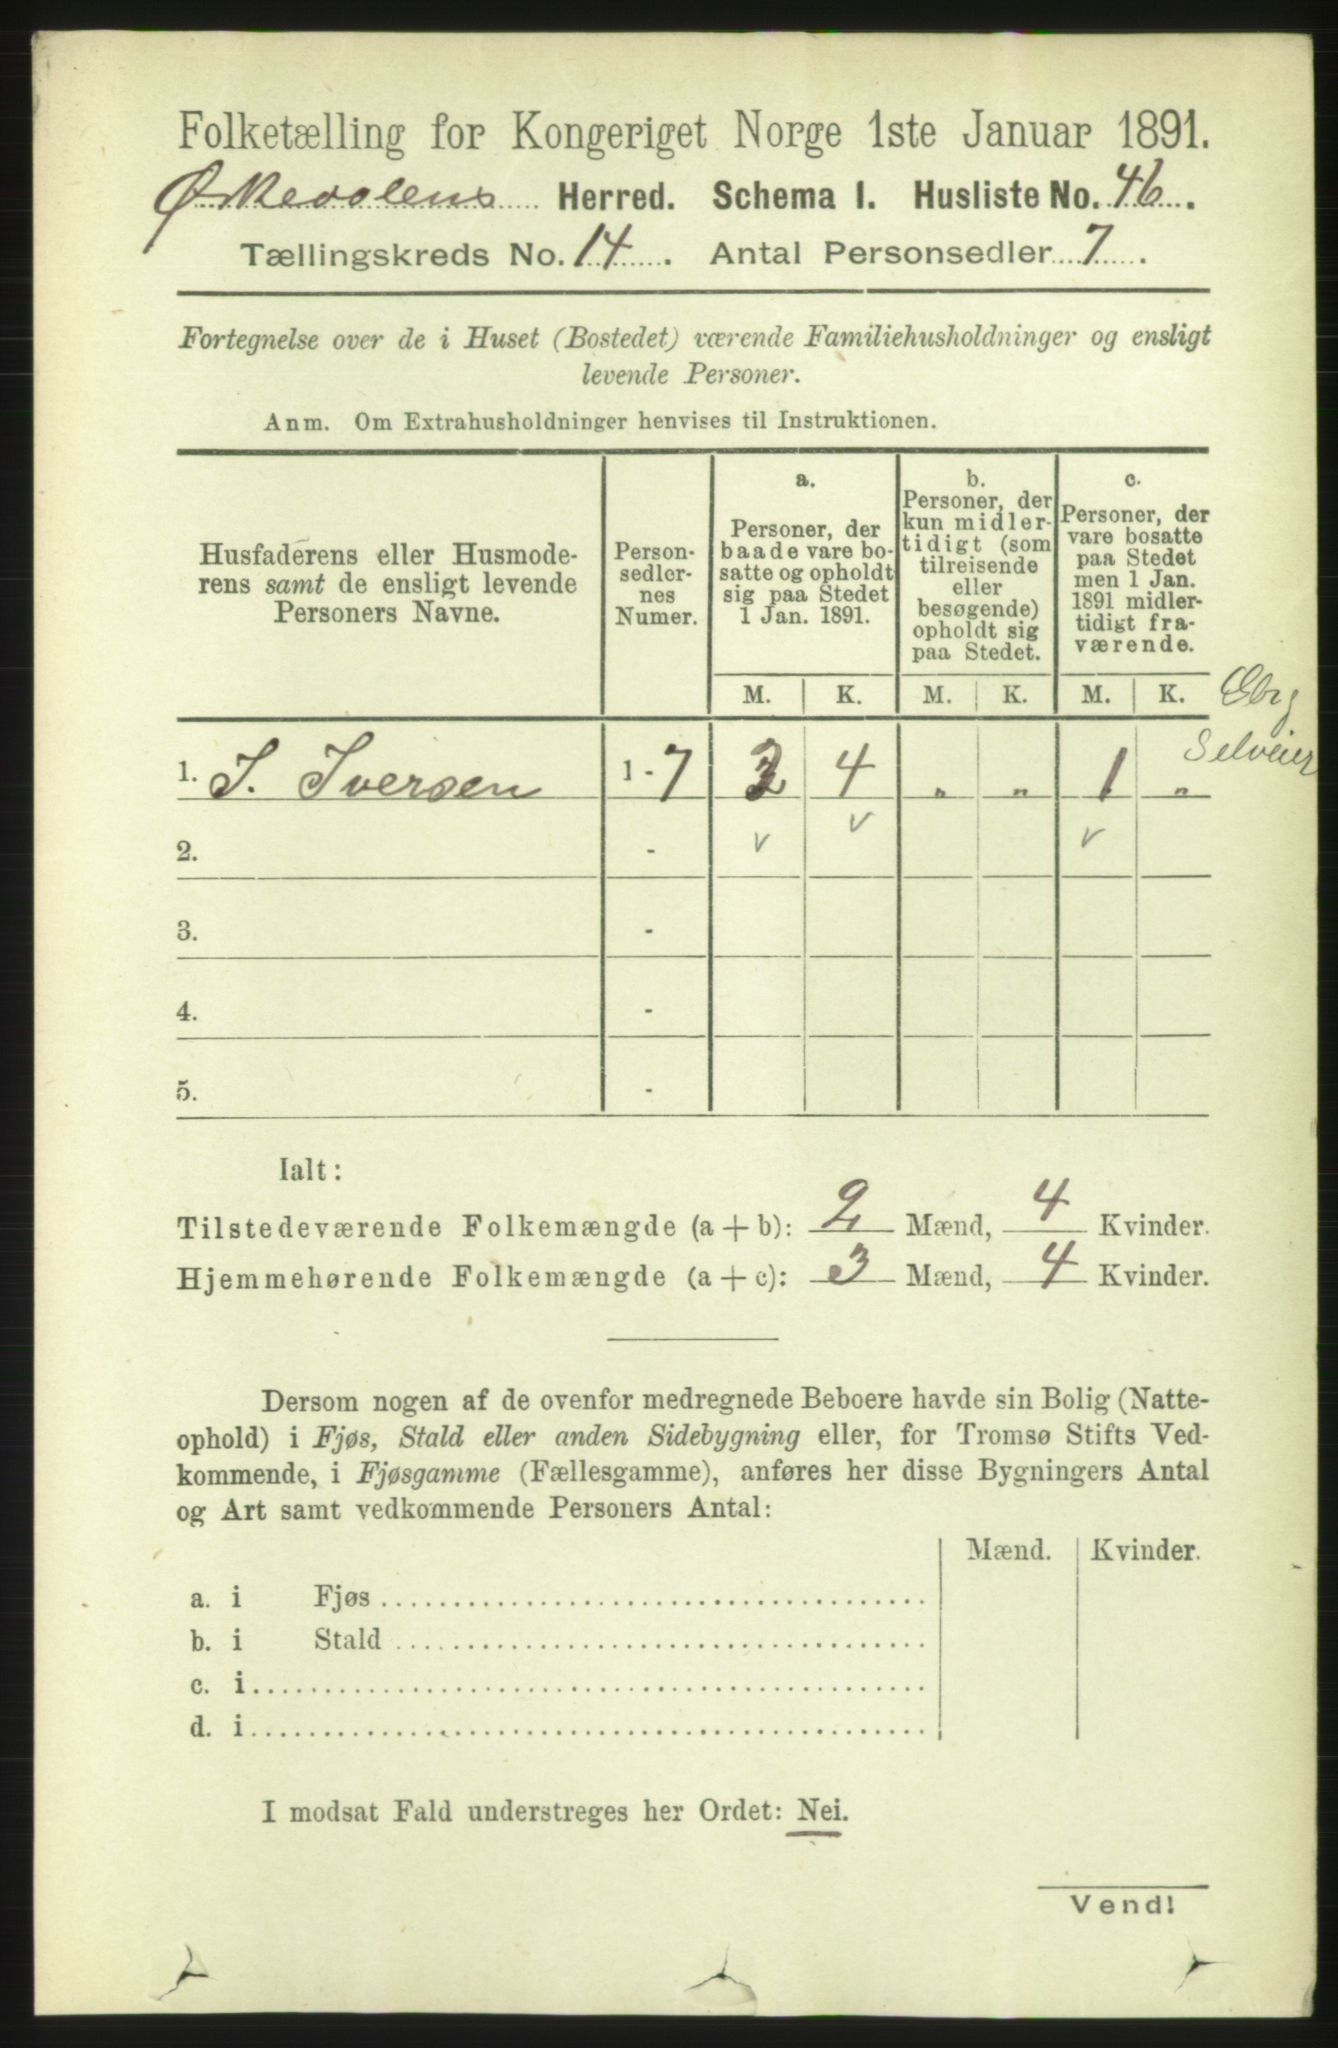 Folketælling for Kongeriget Norge 1ste Januar 1891.
Ørkedalens Herred. Schema I. Husliste No. 46.
Tællingskreds No. 14. Antal Personsedler 7.
Fortegnelse over de i Huset (Bostedet) værende Familiehusholdninger og ensligt
levende Personer.
Anm. Om Extrahusholdninger henvises til Instruktionen.
Husfaderens eller Husmode-
rens samt de ensligt levende
Personers Navne.
Person-
sedler-
nes
Numer.
a.
Personer, der
baade vare bo-
satte og opholdt
sig paa Stedet
1 Jan. 1891.
b.
Personer, der
kun midler-
tidigt (som
tilreisende
eller
besøgende)
opholdt sig
paa Stedet.
c.
Personer, der
vare bosatte
paa Stedet
men 1 Jan.
1891 midler-
tidigt fra-
værende.
M. K. M. K. M. K.
Selveier
1. I. Iversen 1 - 7 2 4 " " 1 "
v v v
2. -
3. -
4. -
5. -
Ialt:
Tilstedeværende Folkemængde (a + b): 2 Mænd, 4 Kvinder.
Hjemmehørende Folkemængde (a + c): 3 Mænd, 4 Kvinder.
Dersom nogen af de ovenfor medregnede Beboere havde sin Bolig (Natte-
ophold) i Fjøs, Stald eller anden Sidebygning eller, for Tromsø Stifts Ved-
kommende, i Fjøsgamme (Fællesgamme), anføres her disse Bygningers Antal
og Art samt vedkommende Personers Antal:
Mænd. Kvinder.
a. i Fjøs
b. i Stald
c. i
d. i
I modsat Fald understreges her Ordet: Nei.
Vend!